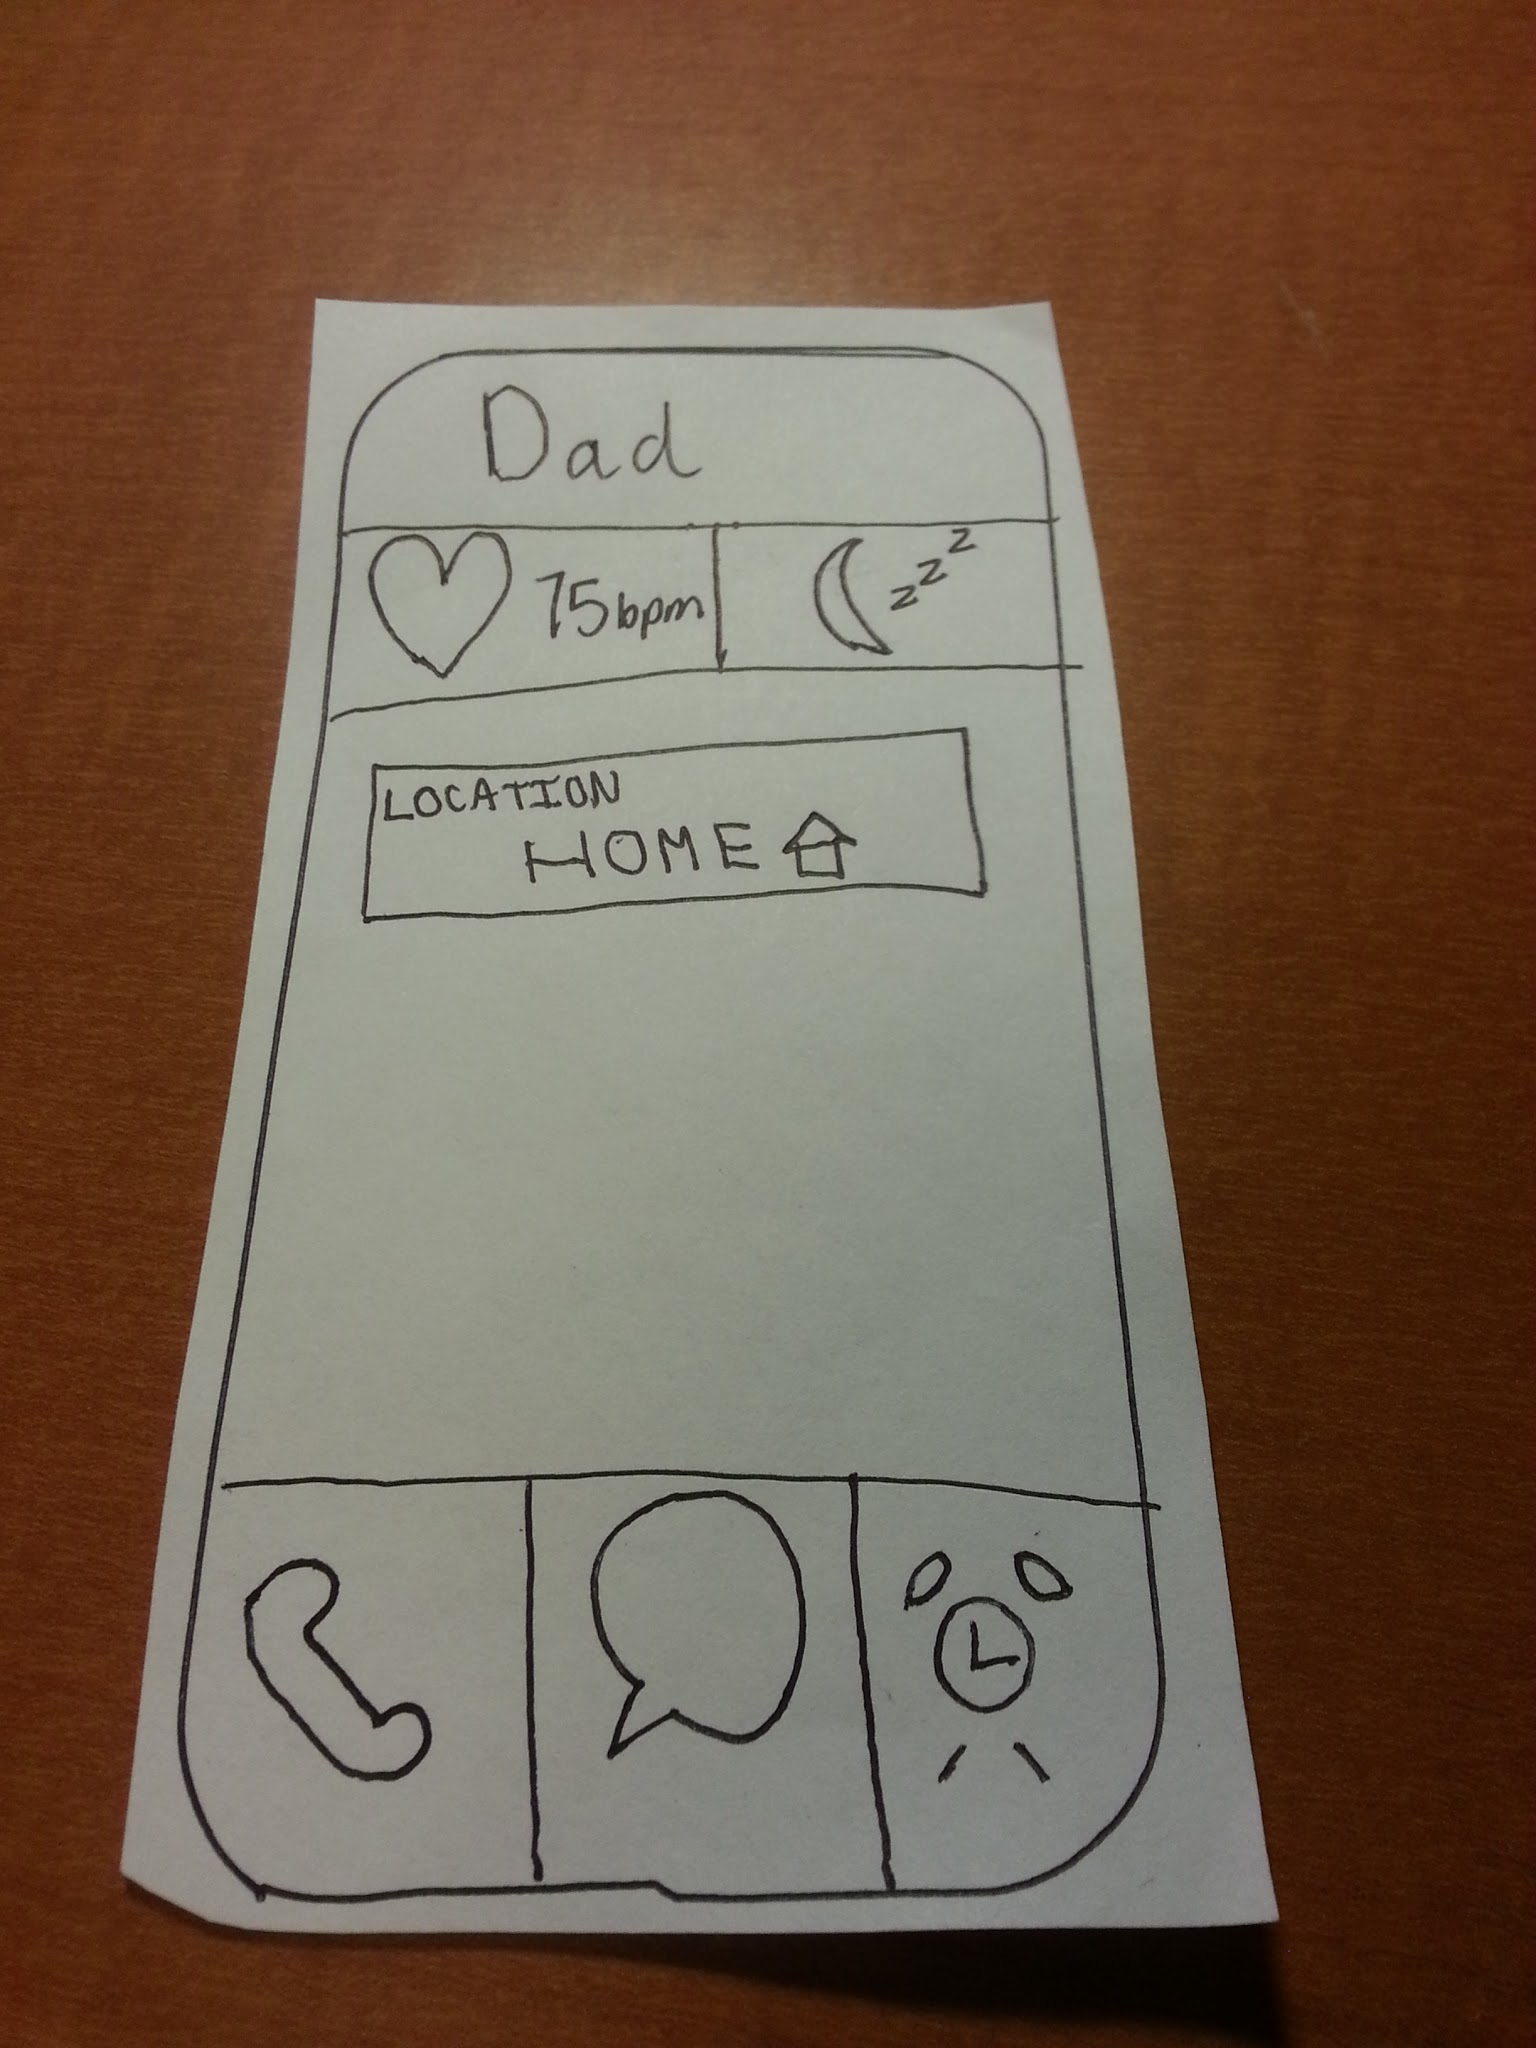 Dad
75bpm
zzz
LOCATION
HOME